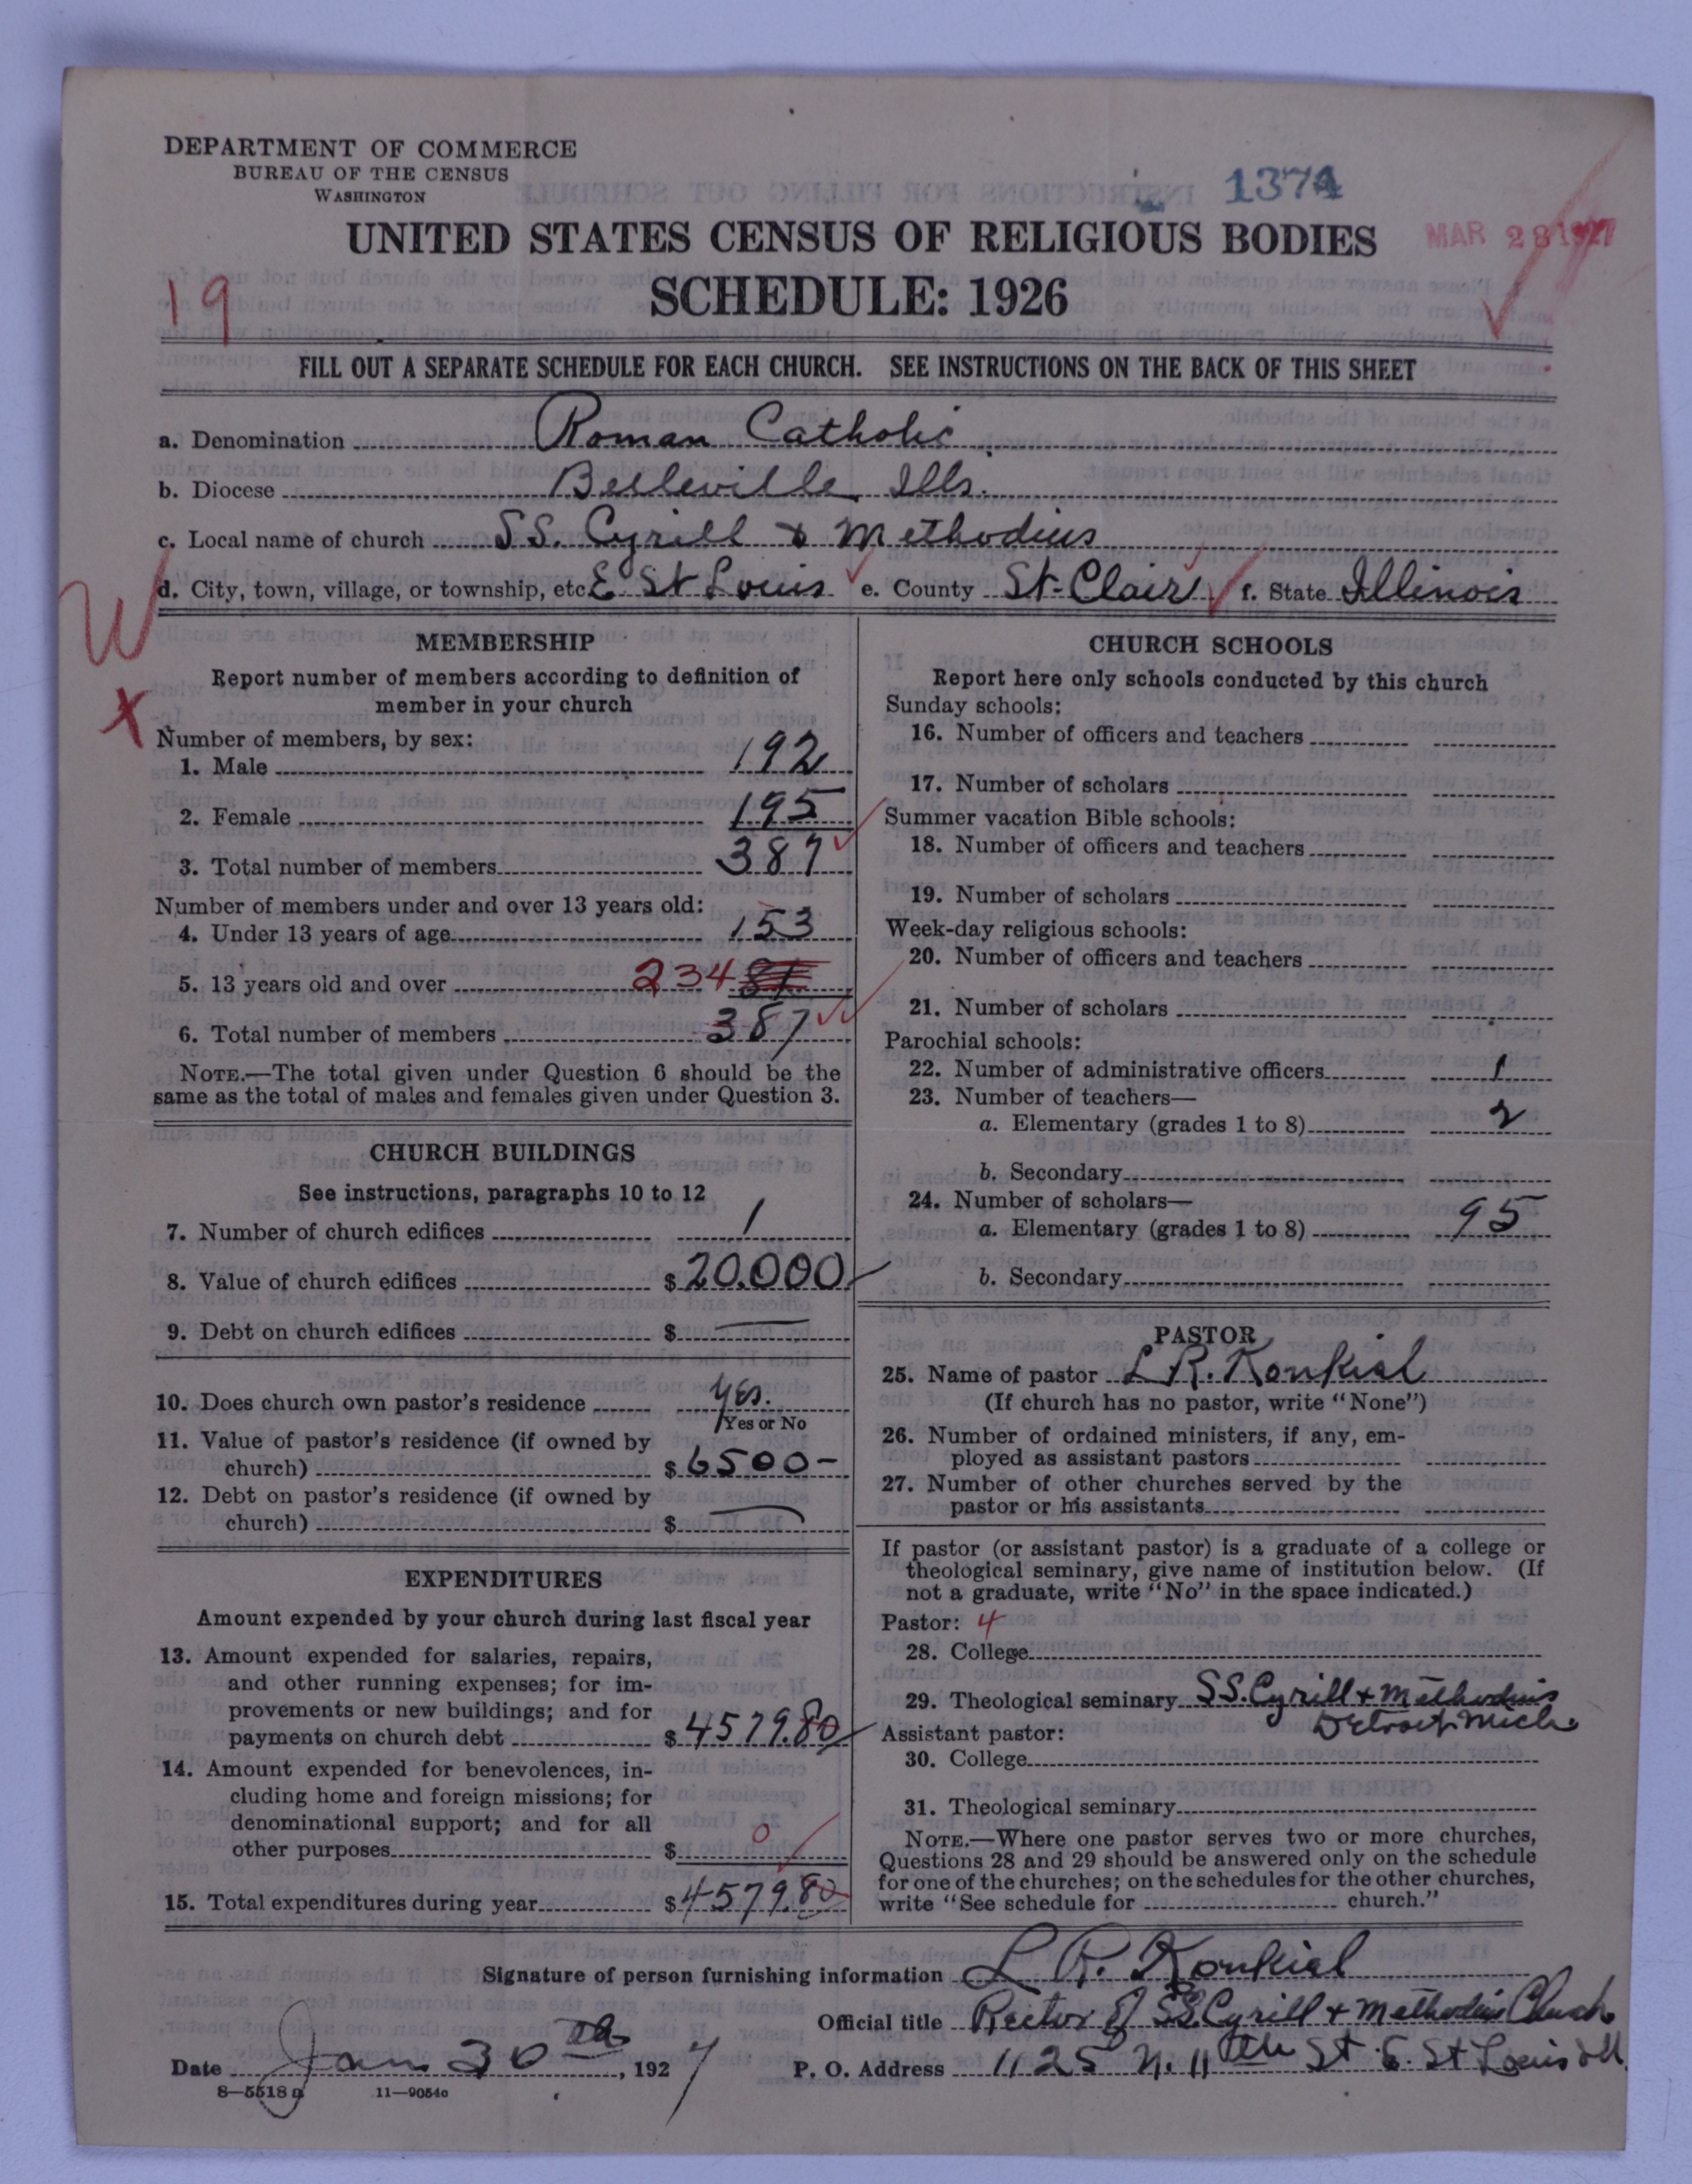 DEPARTMENT OF COMMERCE
BUREAU OF THE CENSUS
WASHINGTON
1374
UNITED STATES CENSUS OF RELIGIOUS BODIES
MAR 28 1927
SCHEDULE: 1926
19
FILL OUT A SEPARATE SCHEDULE FOR EACH CHURCH. SEE INSTRUCTIONS ON THE BACK OF THIS SHEET
a. Denomination Roman Catholic
b. Diocese Belleville Ills.
c. Local name of church SS. Cyrill & Methodius
d. City, town, village, or township, etc. E St Louis e. County St. Clair f. State Illinois
W
X
MEMBERSHIP
Report number of members according to definition of
member in your church
Number of members, by sex:
1. Male 192
2. Female 195
3. Total number of members 387
Number of members under and over 13 years old:
4. Under 13 years of age 153
5. 13 years old and over 234
6. Total number of members 387
NOTE.—The total given under Question 6 should be the
same as the total of males and females given under Question 3.
CHURCH BUILDINGS
See instructions, paragraphs 10 to 12
7. Number of church edifices 1
8. Value of church edifices $ 20.000
9. Debt on church edifices $ —
10. Does church own pastor's residence yes.
Yes or No
11. Value of pastor's residence (if owned by
church) $ 6500-
12. Debt on pastor's residence (if owned by
church) $ —
EXPENDITURES
Amount expended by your church during last fiscal year
13. Amount expended for salaries, repairs,
and other running expenses; for im-
provements or new buildings; and for
payments on church debt $ 4579.80
14. Amount expended for benevolences, in-
cluding home and foreign missions; for
denominational support; and for all
other purposes $ 0
15. Total expenditures during year $ 4579.80
CHURCH SCHOOLS
Report here only schools conducted by this church
Sunday schools:
16. Number of officers and teachers
17. Number of scholars
Summer vacation Bible schools:
18. Number of officers and teachers
19. Number of scholars
Week-day religious schools:
20. Number of officers and teachers
21. Number of scholars
Parochial schools:
22. Number of administrative officers 1
23. Number of teachers—
a. Elementary (grades 1 to 8) 2
b. Secondary
24. Number of scholars—
a. Elementary (grades 1 to 8) 95
b. Secondary
PASTOR
25. Name of pastor L R. Konkiel
(If church has no pastor, write "None")
26. Number of ordained ministers, if any, em-
ployed as assistant pastors
27. Number of other churches served by the
pastor or his assistants
If pastor (or assistant pastor) is a graduate of a college or
theological seminary, give name of institution below. (If
not a graduate, write "No" in the space indicated.)
Pastor: 4
28. College
29. Theological seminary SS. Cyrill & Methodius
Detroit Mich
Assistant pastor:
30. College
31. Theological seminary
NOTE.—Where one pastor serves two or more churches,
Questions 28 and 29 should be answered only on the schedule
for one of the churches; on the schedules for the other churches,
write "See schedule for church."
Signature of person furnishing information L R. Konkiel
Official title Rector of SS Cyrill & Methodius Church
Date Jan 30th, 1927 P. O. Address 1125 N. 11th St E. St Louis Ill
8—5518 a 11—9054a